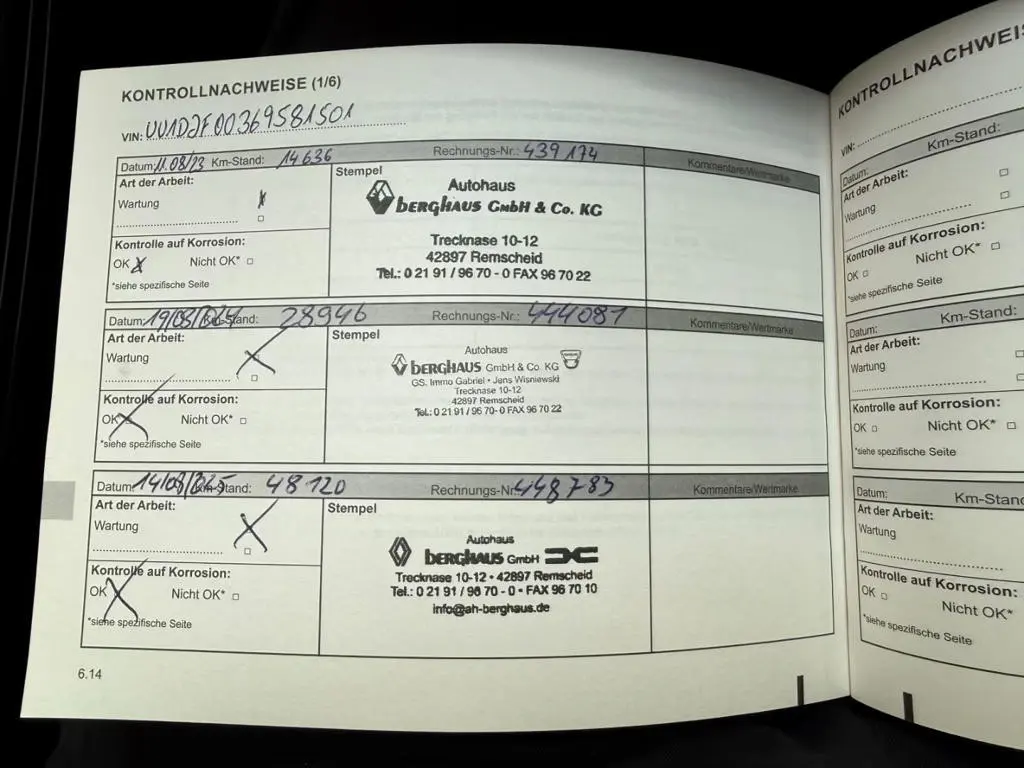 KONTROLLNACHWEISE (1/6)
VIN: UU1DJF00369581501
Datum: 11.08/23 Km-Stand: 14636 Rechnungs-Nr.: 439174 Kommentare/Wertmarke
Art der Arbeit:
Wartung
Kontrolle auf Korrosion:
OK Nicht OK*
*siehe spezifische Seite
Stempel
Autohaus
BERGHAUS GmbH & Co. KG
Trecknase 10-12
42897 Remscheid
Tel.: 0 21 91 / 96 70 - 0 FAX 96 70 22
Datum: 19/08/ Km-Stand: 28946 Rechnungs-Nr.: 444081 Kommentare/Wertmarke
Art der Arbeit:
Wartung
Kontrolle auf Korrosion:
OK Nicht OK*
*siehe spezifische Seite
Stempel
Autohaus
BERGHAUS GmbH & Co. KG
GS. Immo Gabriel • Jens Wisniewski
Trecknase 10-12
42897 Remscheid
Tel.: 0 21 91 / 96 70- 0 FAX 96 70 22
Datum: 14/08/ Km-Stand: 48120 Rechnungs-Nr.: 448783 Kommentare/Wertmarke
Art der Arbeit:
Wartung
Kontrolle auf Korrosion:
OK Nicht OK*
*siehe spezifische Seite
Stempel
Autohaus
BERGHAUS GmbH
Trecknase 10-12 • 42897 Remscheid
Tel.: 0 21 91 / 96 70 - 0 • FAX 96 70 10
info@ah-berghaus.de
6.14
KONTROLLNACHWEISE
VIN:
Datum: Km-Stand:
Art der Arbeit:
Wartung
Kontrolle auf Korrosion:
OK Nicht OK*
*siehe spezifische Seite
Datum: Km-Stand:
Art der Arbeit:
Wartung
Kontrolle auf Korrosion:
OK Nicht OK*
*siehe spezifische Seite
Datum: Km-Stand
Art der Arbeit:
Wartung
Kontrolle auf Korrosion:
OK Nicht OK*
*siehe spezifische Seite